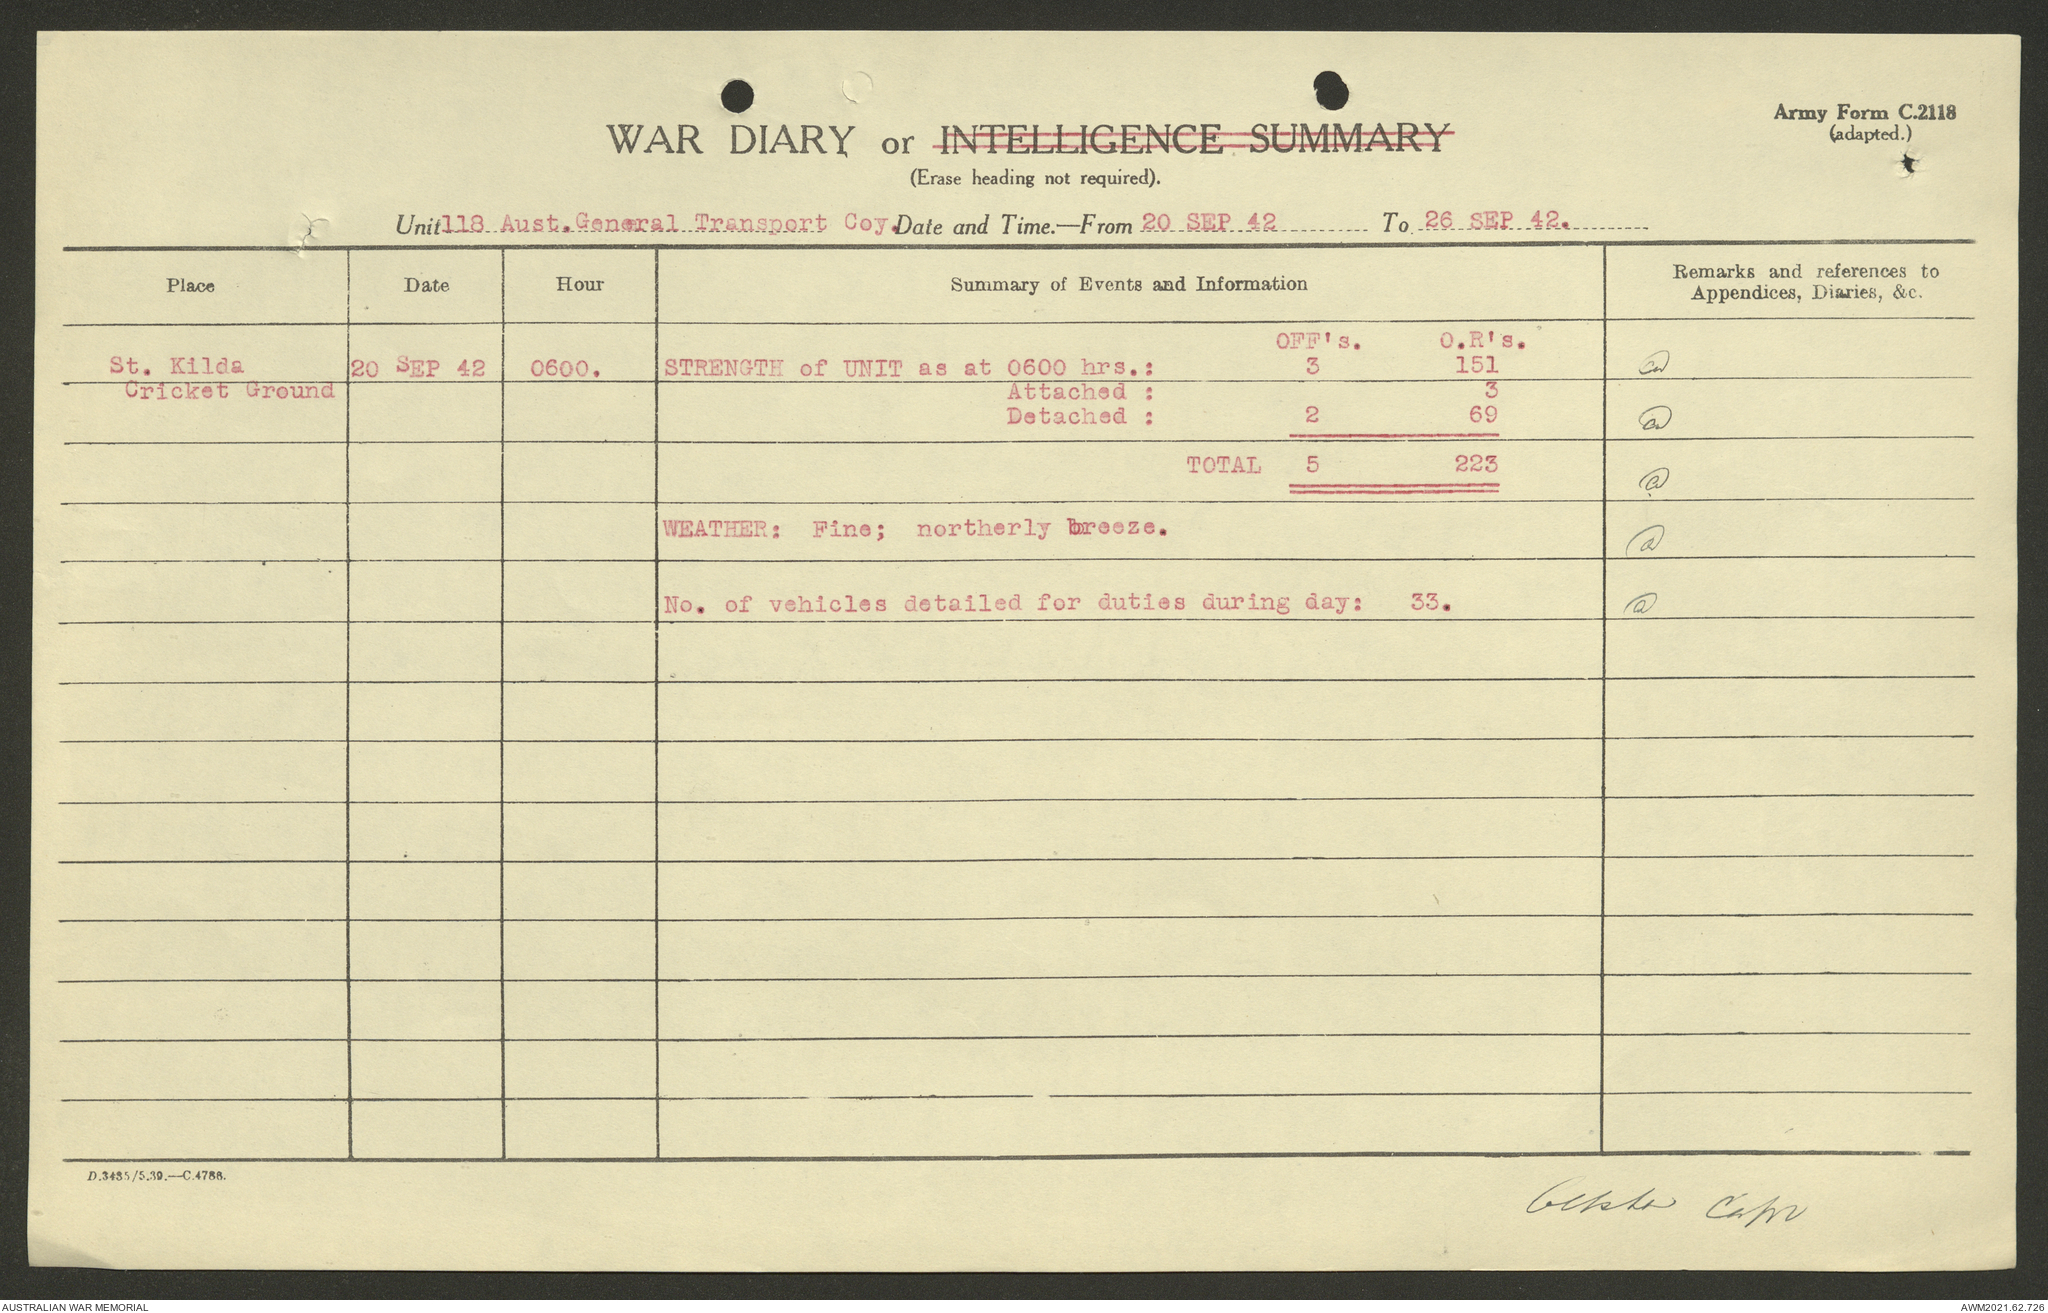 Army Form C.2118
(adapted.)
WAR DIARY or INTELLIGENCE SUMMARY
(Erase heading not required).
Unit 118 Aust. General Transport Coy. Date and Time.—From 20 SEP 42 To 26 SEP 42.
Place Date Hour Summary of Events and Information Remarks and references to
Appendices, Diaries, &c.
OFF's. O.R's.
St. Kilda 20 SEP 42 0600. STRENGTH of UNIT as at 0600 hrs.: 3 151
Cricket Ground Attached : 3
Detached : 2 69
TOTAL 5 223
WEATHER: Fine; northerly breeze.
No. of vehicles detailed for duties during day: 33.
D.3435/5.39.—C.4788.
Capt
AUSTRALIAN WAR MEMORIAL AWM2021.62.726